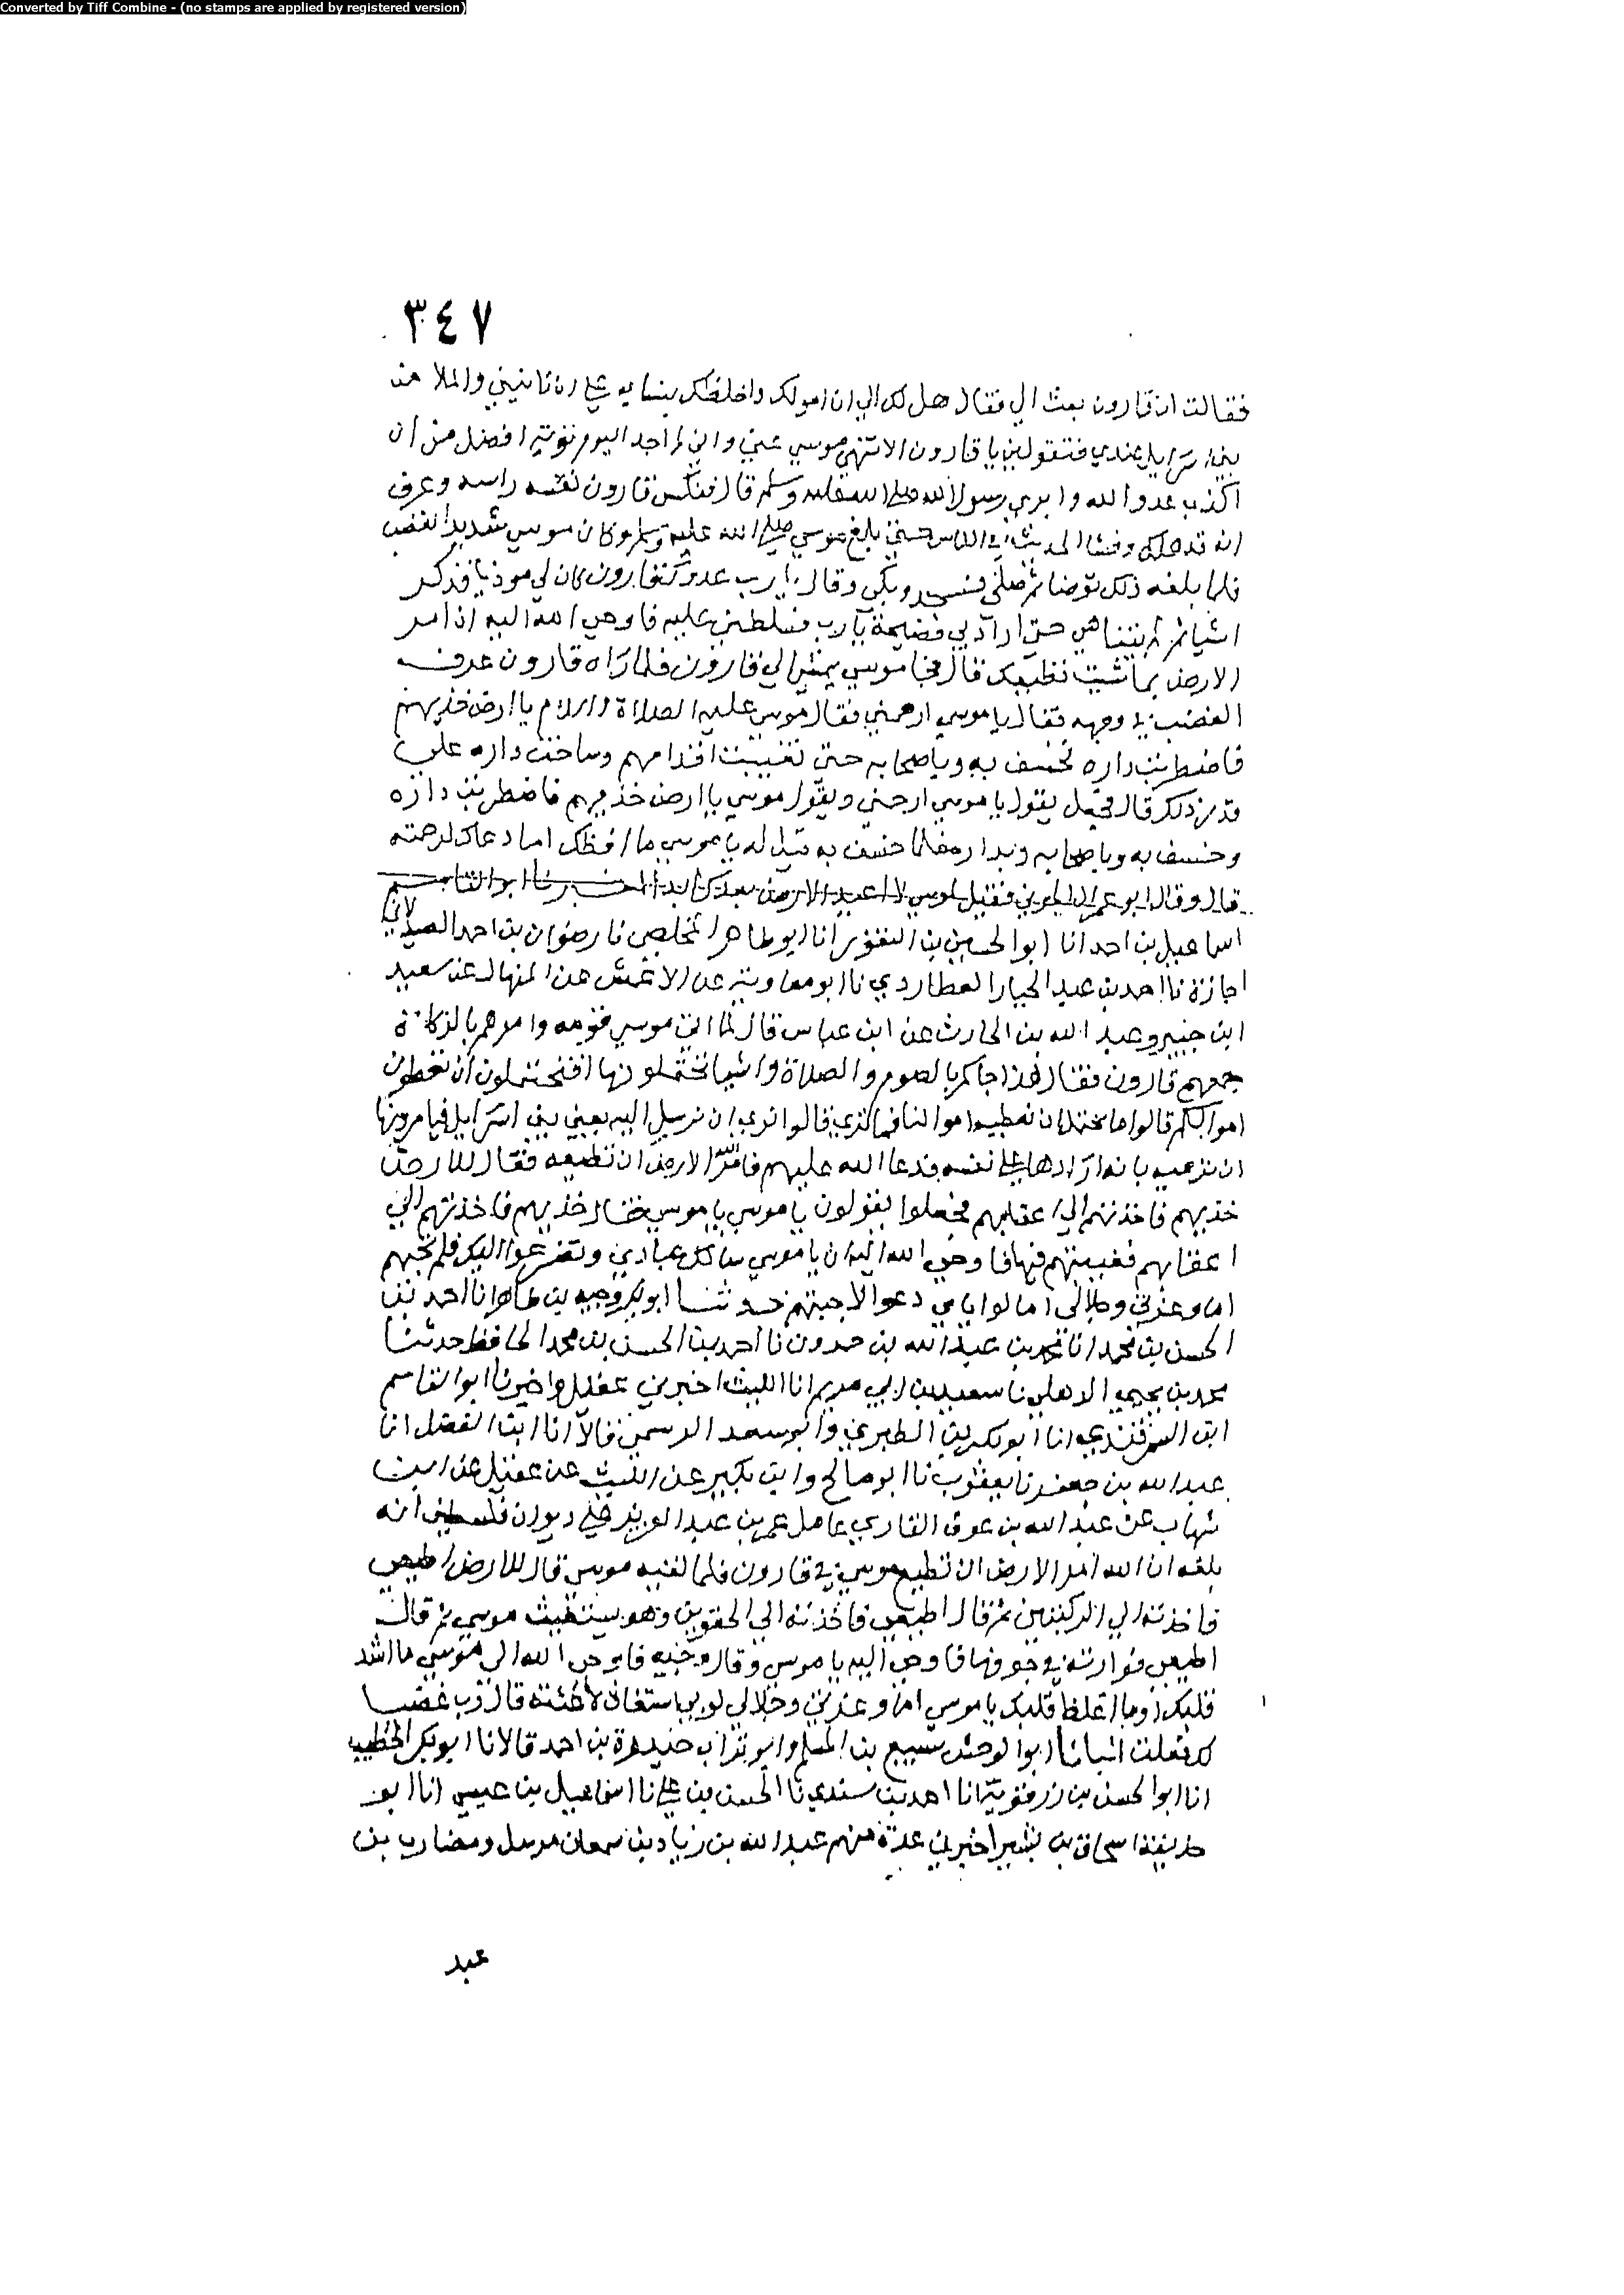 Converted by Tiff Combine - (no stamps are applied by registered version)
٣٤٧
فقالت ان قارون بعث الي فقال هل لك الي ان امولك واخلطك بنسايه على ان تاتيني والملا من
بني اسرايل عندي فتقولين يا قارون الا تنهي موسي عني واني لم اجد اليوم توبة افضل من ان
اكذب عدو الله وابري رسول الله صلى الله عليه وسلم قال فنكس قارون نفسه راسه وعرف
انه قد هلك وفشا الحديث في الناس حتي بلغ موسي صلى الله عليه وسلم وكان موسي شديد الغضب
فلما بلغه ذلك توضا ثم صلى فسجد وبكي وقال يا رب عدوك قارون كان لي موذيا فذكر
اشيا ثم لم يتناهي حتي اراد بي فضيحة يا رب فسلطني عليه فاوحي الله اليه ان امر
الارض بما شيت تطيعك قال فجا موسي يمشي الي قارون فلما راه قارون عرف
الغضب في وجهه فقال يا موسي ارحمني فقال موسي عليه الصلاة والسلام يا ارض خذيهم
فاضطربت داره فخسف به وباصحابه حتي تغيبت اقدامهم وساخت داره علي
قدر ذلك قال فجعل يقول يا موسي ارحمني ويقول موسي يا ارض خذيهم فاضطربت داره
وخسف به وباصحابه وبداره فلما خسف به قيل له يا موسي ما افظك اما دعاك لرحمته
قال وقال ابو عمران الجوني فقيل لموسي لا اعبد الارض بعدك ابدا اخبرنا ابو القاسم
اسماعيل بن احمد انا ابو الحسين بن النقور انا ابو طاهر المخلص نا رضوان بن احمد الصيدلاني
اجازة نا احمد بن عبد الجبار العطاردي نا ابو معاوية عن الاعمش عن المنهال عن سعيد
ابن جبير وعبد الله بن الحارث عن ابن عباس قال لما اتي موسي قومه وامرهم بالزكاة
جمعهم قارون فقال هذا جاكم بالصوم والصلاة واشيا تحتملونها افتحتملون ان تعطون
اموالكم قالوا ما نحتمل ان نعطيه اموالنا فما تري قالوا نري ان نرسل الي بغي بني اسرايل فيامرونها
ان ترميه بانه ارادها على نفسه فدعا الله عليهم فامر الله الارض ان تطيعه فقال للارض
خذيهم فاخذتهم الي اعقابهم فجعلوا يقولون يا موسي يا موسي فقال خذيهم فاخذتهم الي
اعقابهم فغيبتهم فيها فاوحي الله اليه ان يا موسي سالك عبادي وتضرعوا اليك فلم تجبهم
اما وعزتي وجلالي اما لو اياي دعوا لاجبتهم حدثنا ابو بكر وجيه بن طاهر انا احمد بن
الحسن بن محمد انا محمد بن عبد الله بن حمدون نا احمد بن الحسن بن محمد الحافظ حدثنا
محمد بن يحيي الذهلي نا سعيد بن ابي مريم انا الليث اخبرني عقيل واخبرنا ابو القاسم
ابن السمرقندي انا ابو بكر بن الطبري وابو سعد الرسمي قالا انا ابن الفضل انا
عبد الله بن جعفر نا يعقوب نا ابو صالح وابن بكير عن الليث عن عقيل عن ابن
شهاب عن عبد الله بن عوف القاري عامل عمر بن عبد العزيز على ديوان فلسطين انه
بلغه ان الله امر الارض ان تطيع موسي في قارون فلما لقيه موسي قال للارض اطيعي
فاخذته الي الركبتين ثم قال اطيعي فاخذته الي الحقوين وهو يستغيث موسي ثم قال
اطيعي فوارته في جوفها فاوحي اليه يا موسي وقال وجيه فاوحي الله الى موسي ما اشد
قلبك او ما اغلظ قلبك يا موسي اما وعزتي وجلالي لو بي استغاث لاغثته قال رب غضبا
لك فعلت انبانا ابو الوحش سبيع بن المسلم وابو تراب حيدرة بن احمد قالا نا ابو بكر الخطيب
انا ابو الحسن بن زرقويه انا احمد بن سندي نا الحسن بن علي نا اسماعيل بن عيسي انا ابو
حذيفة اسحاق بن بشير اخبرني عدة منهم عبد الله بن زياد بن سمعان مرسل ومضارب بن
عبد